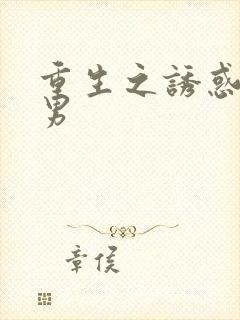 重生之誘惑
男
章侯